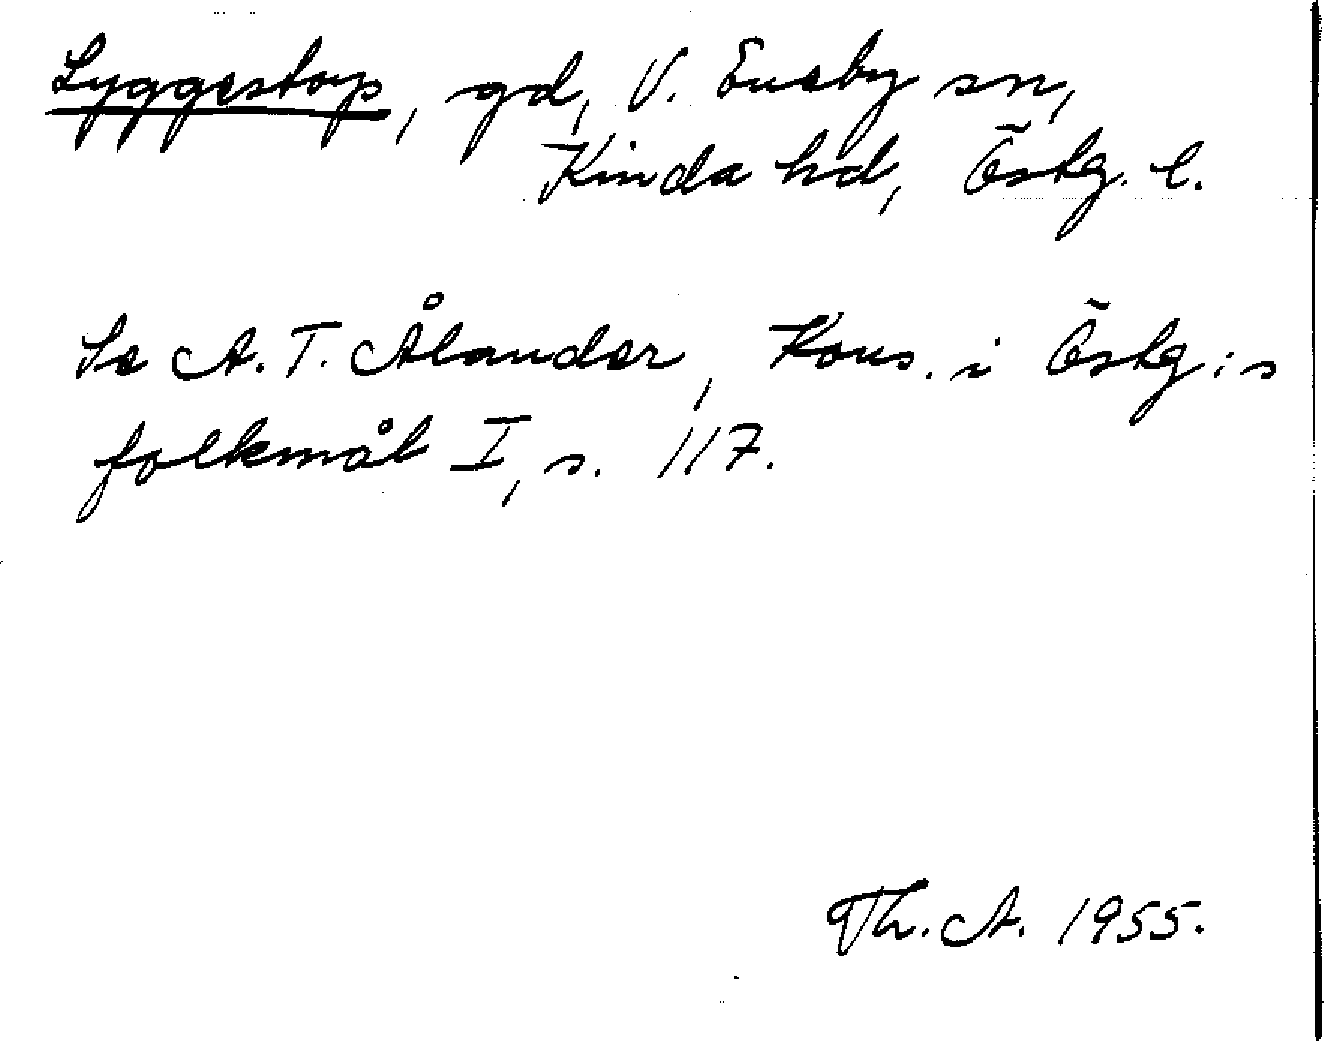 Lyggestorp, gd, V. Eneby sn,
Kinda hd, Östg. l.
Se A. T. Ålander, Kons. i Östg:s
folkmål I, s. 117.
Th. A. 1955.